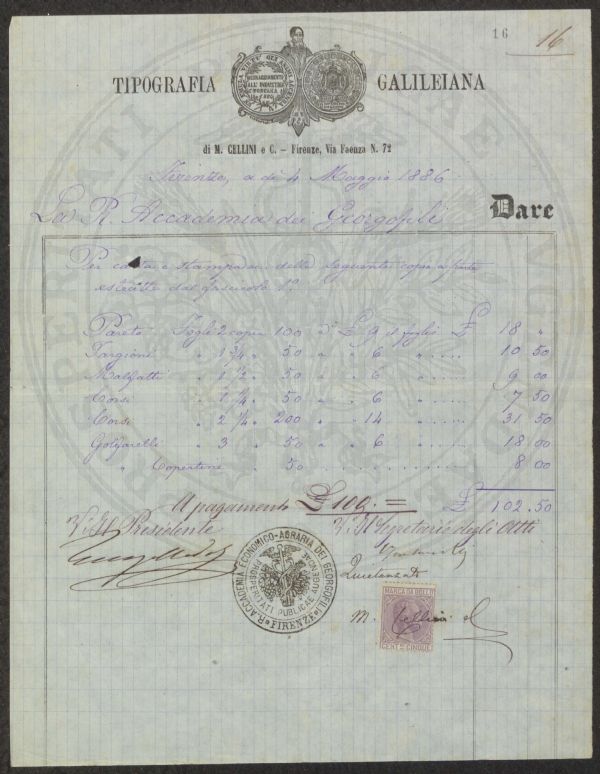 16 16
TIPOGRAFIA GALILEIANA
di M. CELLINI e C. – Firenze, Via Faenza N. 72
Firenze, a dì 4 Maggio 1886
La R. Accademia dei Georgofili Dare
Per carta e stampa delle seguenti copie a parte
estratte dal fascicolo 1º
Pareto Fogli 2 copie 100 a £ 9 il foglio £ 18 "
Targioni " 1 3/4 " 50 " " 6 " 10 50
Malfatti " 1 1/2 " 50 " " 6 " 9 00
Corsi " 1 1/4 " 50 " " 6 " 7 50
Corsi " 2 1/4 " 200 " " 14 " 31 50
Golfarelli " 3 " 50 " " 6 " 18 00
" Copertine 50 8 00
A pagamenti £ 100. = £ 102.50
V. Il Presidente V. Il Segretario degli Atti
Quietanzato
R. ACCADEMIA ECONOMICO-AGRARIA DEI GEORGOFILI
FIRENZE
PROSPERITATI PUBLICAE AUGENDAE
MARCA DA BOLLO
M. Cellini
CENT. DI CINQUE